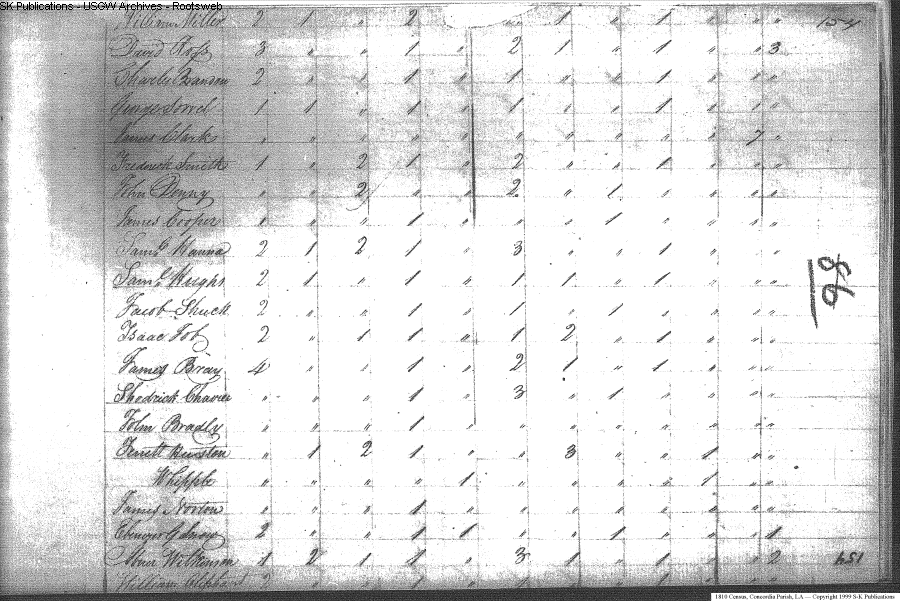 SK Publications - USGW Archives - Rootsweb
William Miller 2 1 " 2 1 " 1 " " " 154
David Ross 3 " " 1 " 2 1 " 1 " " 3
2 " " 1 " 1 " " 1 " " "
George Sorrel 1 1 " 1 " 1 " " 1 " " "
James Clark " " " " " " " " " " 7 "
Fredrick Smith 1 " 2 1 " 2 " " 1 " " "
John Denny " " 2 " " 2 " 1 " " " "
James Cooper " " " 1 " " " 1 " " " "
Saml Hanna 2 1 2 1 " 3 " " 1 " " "
Saml Hughs 2 1 " 1 " 1 1 " 1 " " "
Jacob Shuck 2 " " 1 " 1 " 1 " " " "
Isaac Job 2 " 1 1 " 1 2 " 1 " " "
James Bray 4 " " 1 " 2 1 " 1 " " "
Shedrick " " " 1 " 3 " 1 " " " "
John Bradly " " " 1 " " " " " " " "
Huston " 1 2 1 " " 3 " " 1 " "
Whipple " " " " 1 " " " " 1 " "
James Norton " " " 1 " " " " " " " "
2 " " 1 1 " " 1 " " " 1
Wilkinson 1 2 1 1 " 3 1 " 1 " " 2 154
William 2 " " 1 " " " 1 " " "
98
1810 Census, Concordia Parish, LA — Copyright 1999 S-K Publications